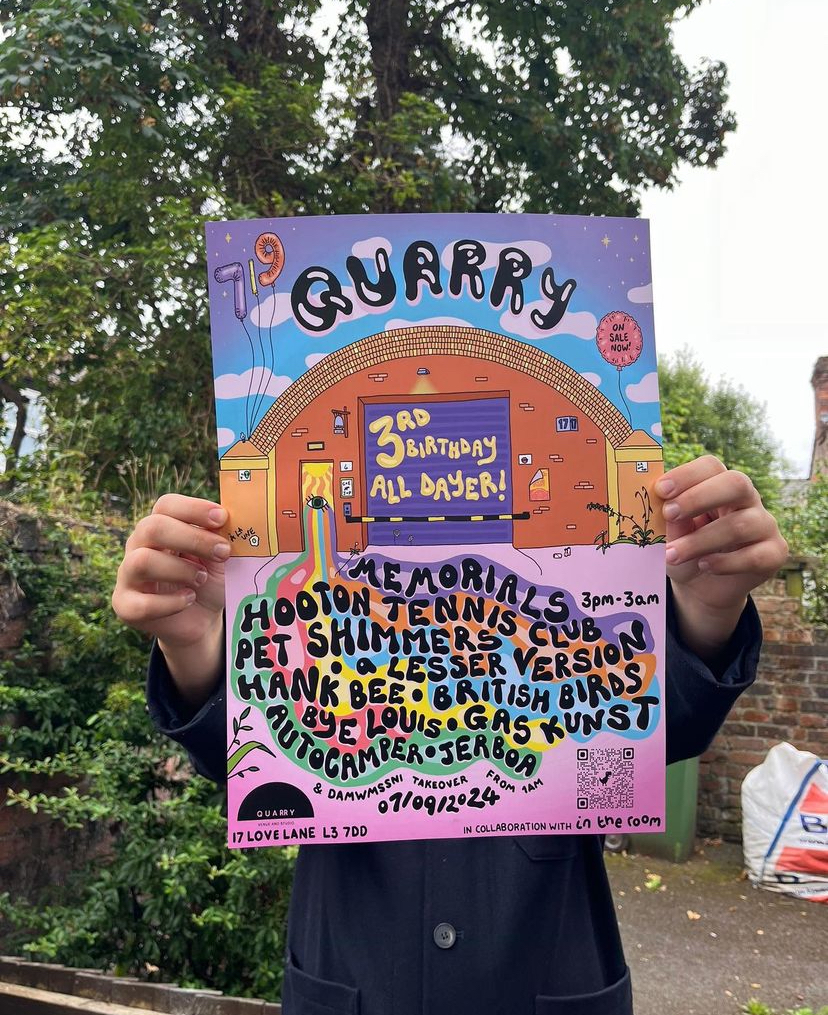 7/9
QUARRY
ON
SALE
NOW!
17
3RD
BIRTHDAY
ALL DAYER!
MEMORIALS
3pm-3am
HOOTON TENNIS CLUB
PET SHIMMERS
a LESSER VERSION
HANK BEE • BRITISH BIRDS
BYE LOUIS • GAS KUNST
AUTOCAMPER • JERBOA
& DAMWMSSNI TAKEOVER FROM 1AM
07/09/2024
QUARRY
17 LOVE LANE L3 7DD
IN COLLABORATION WITH in the room